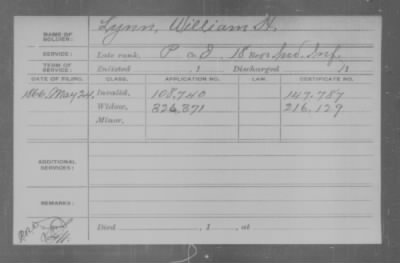 NAME OF SOLDIER: Lynn, William H.
SERVICE: Late rank, P Co. 18 Reg't Ind. Inf.
TERM OF SERVICE: Enlisted , 1 Discharged , 1
DATE OF FILING. CLASS. APPLICATION NO. LAW. CERTIFICATE NO.
1866, May 24. Invalid, 108,740 147,787
Widow, 326,371 216,129
Minor,
ADDITIONAL SERVICES:
REMARKS:
Died , 1 , at